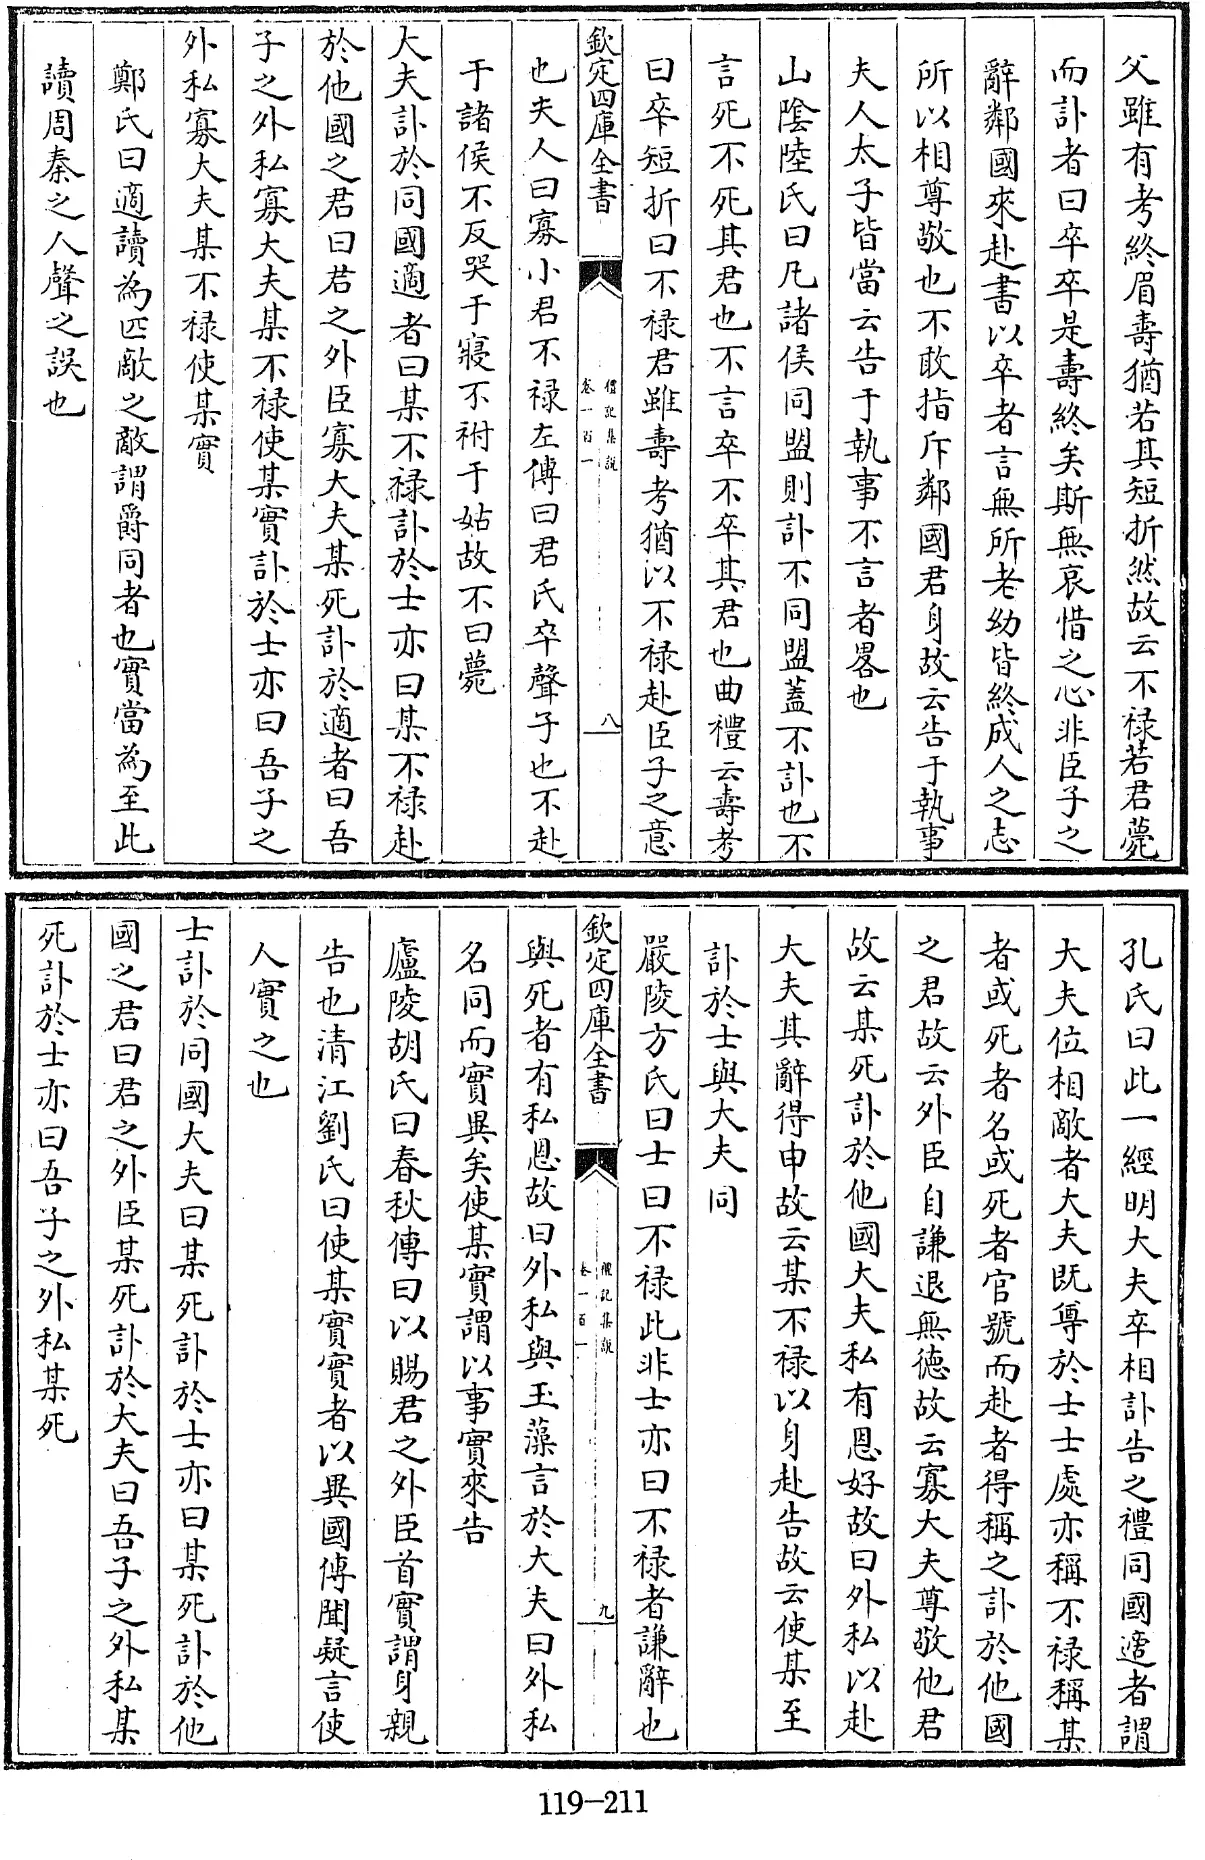 父雖有考終眉壽猶若其短折然故云不禄若君薨
而訃者曰卒卒是壽終矣斯無哀惜之心非臣子之
辭鄰國來赴書以卒者言無所老幼皆終成人之志
所以相尊敬也不敢指斥鄰國君身故云告于執事
夫人太子皆當云告于執事不言者畧也
山陰陸氏曰凡諸侯同盟則訃不同盟蓋不訃也不
言死不死其君也不言卒不卒其君也曲禮云壽考
曰卒短折曰不禄君雖壽考猶以不禄赴臣子之意
欽定四庫全書
禮記集說
卷一百一
八
也夫人曰寡小君不禄左傳曰君氏卒聲子也不赴
于諸侯不反哭于寢不祔于姑故不曰薨
大夫訃於同國適者曰某不禄訃於士亦曰某不禄赴
於他國之君曰君之外臣寡大夫某死訃於適者曰吾
子之外私寡大夫某不禄使某實訃於士亦曰吾子之
外私寡大夫某不禄使某實
鄭氏曰適讀為匹敵之敵謂爵同者也實當為至此
讀周秦之人聲之誤也
孔氏曰此一經明大夫卒相訃告之禮同國適者謂
大夫位相敵者大夫既尊於士士處亦稱不禄稱某
者或死者名或死者官號而赴者得稱之訃於他國
之君故云外臣自謙退無德故云寡大夫尊敬他君
故云某死訃於他國大夫私有恩好故曰外私以赴
大夫其辭得申故云某不禄以身赴告故云使某至
訃於士與大夫同
嚴陵方氏曰士曰不禄此非士亦曰不禄者謙辭也
欽定四庫全書
禮記集說
卷一百一
九
與死者有私恩故曰外私與玉藻言於大夫曰外私
名同而實異矣使某實謂以事實來告
廬陵胡氏曰春秋傳曰以賜君之外臣首實謂身親
告也清江劉氏曰使某實實者以異國傳聞疑言使
人實之也
士訃於同國大夫曰某死訃於士亦曰某死訃於他
國之君曰君之外臣某死訃於大夫曰吾子之外私某
死訃於士亦曰吾子之外私某死
119-211